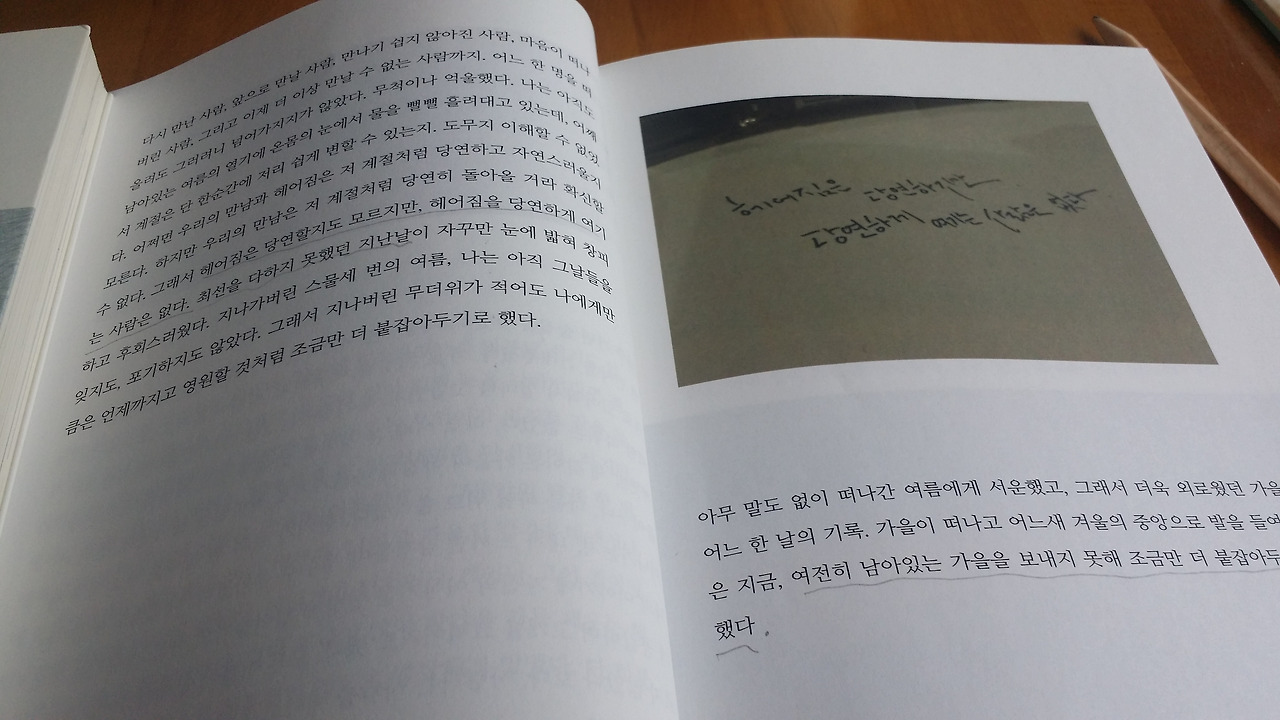 다시 만난 사람, 앞으로 만날 사람, 만나기 쉽지 않아진 사람, 마음이 떠나
버린 사람, 그리고 이제 더 이상 만날 수 없는 사람까지. 어느 한 명을 떠
올려도 그러려니 넘어가지지가 않았다. 무척이나 억울했다. 나는 아직도
남아있는 여름의 열기에 온몸의 눈에서 물을 뻘뻘 흘려대고 있는데, 어째
서 계절은 단 한순간에 저리 쉽게 변할 수 있는지. 도무지 이해할 수 없었
다. 어쩌면 우리의 만남과 헤어짐은 저 계절처럼 당연하고 자연스러울지
모른다. 하지만 우리의 만남은 저 계절처럼 당연히 돌아올 거라 확신할
수 없다. 그래서 헤어짐은 당연할지도 모르지만, 헤어짐을 당연하게 여기
는 사람은 없다. 최선을 다하지 못했던 지난날이 자꾸만 눈에 밟혀 창피
하고 후회스러웠다. 지나가버린 스물세 번의 여름, 나는 아직 그날들을
잊지도, 포기하지도 않았다. 그래서 지나버린 무더위가 적어도 나에게만
큼은 언제까지고 영원할 것처럼 조금만 더 붙잡아두기로 했다.
헤어짐은 당연하지만
당연하게 떼는 사람은 없다
아무 말도 없이 떠나간 여름에게 서운했고, 그래서 더욱 외로웠던 가을
어느 한 날의 기록. 가을이 떠나고 어느새 겨울의 중앙으로 발을 들여
은 지금, 여전히 남아있는 가을을 보내지 못해 조금만 더 붙잡아두
했다.